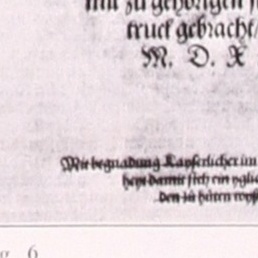 mit zu gehörigen
truck gebracht/
M. D. X
Mit begnadung Kayserlicher
heyt damit sich ein yglic
den zu hüten
g 6